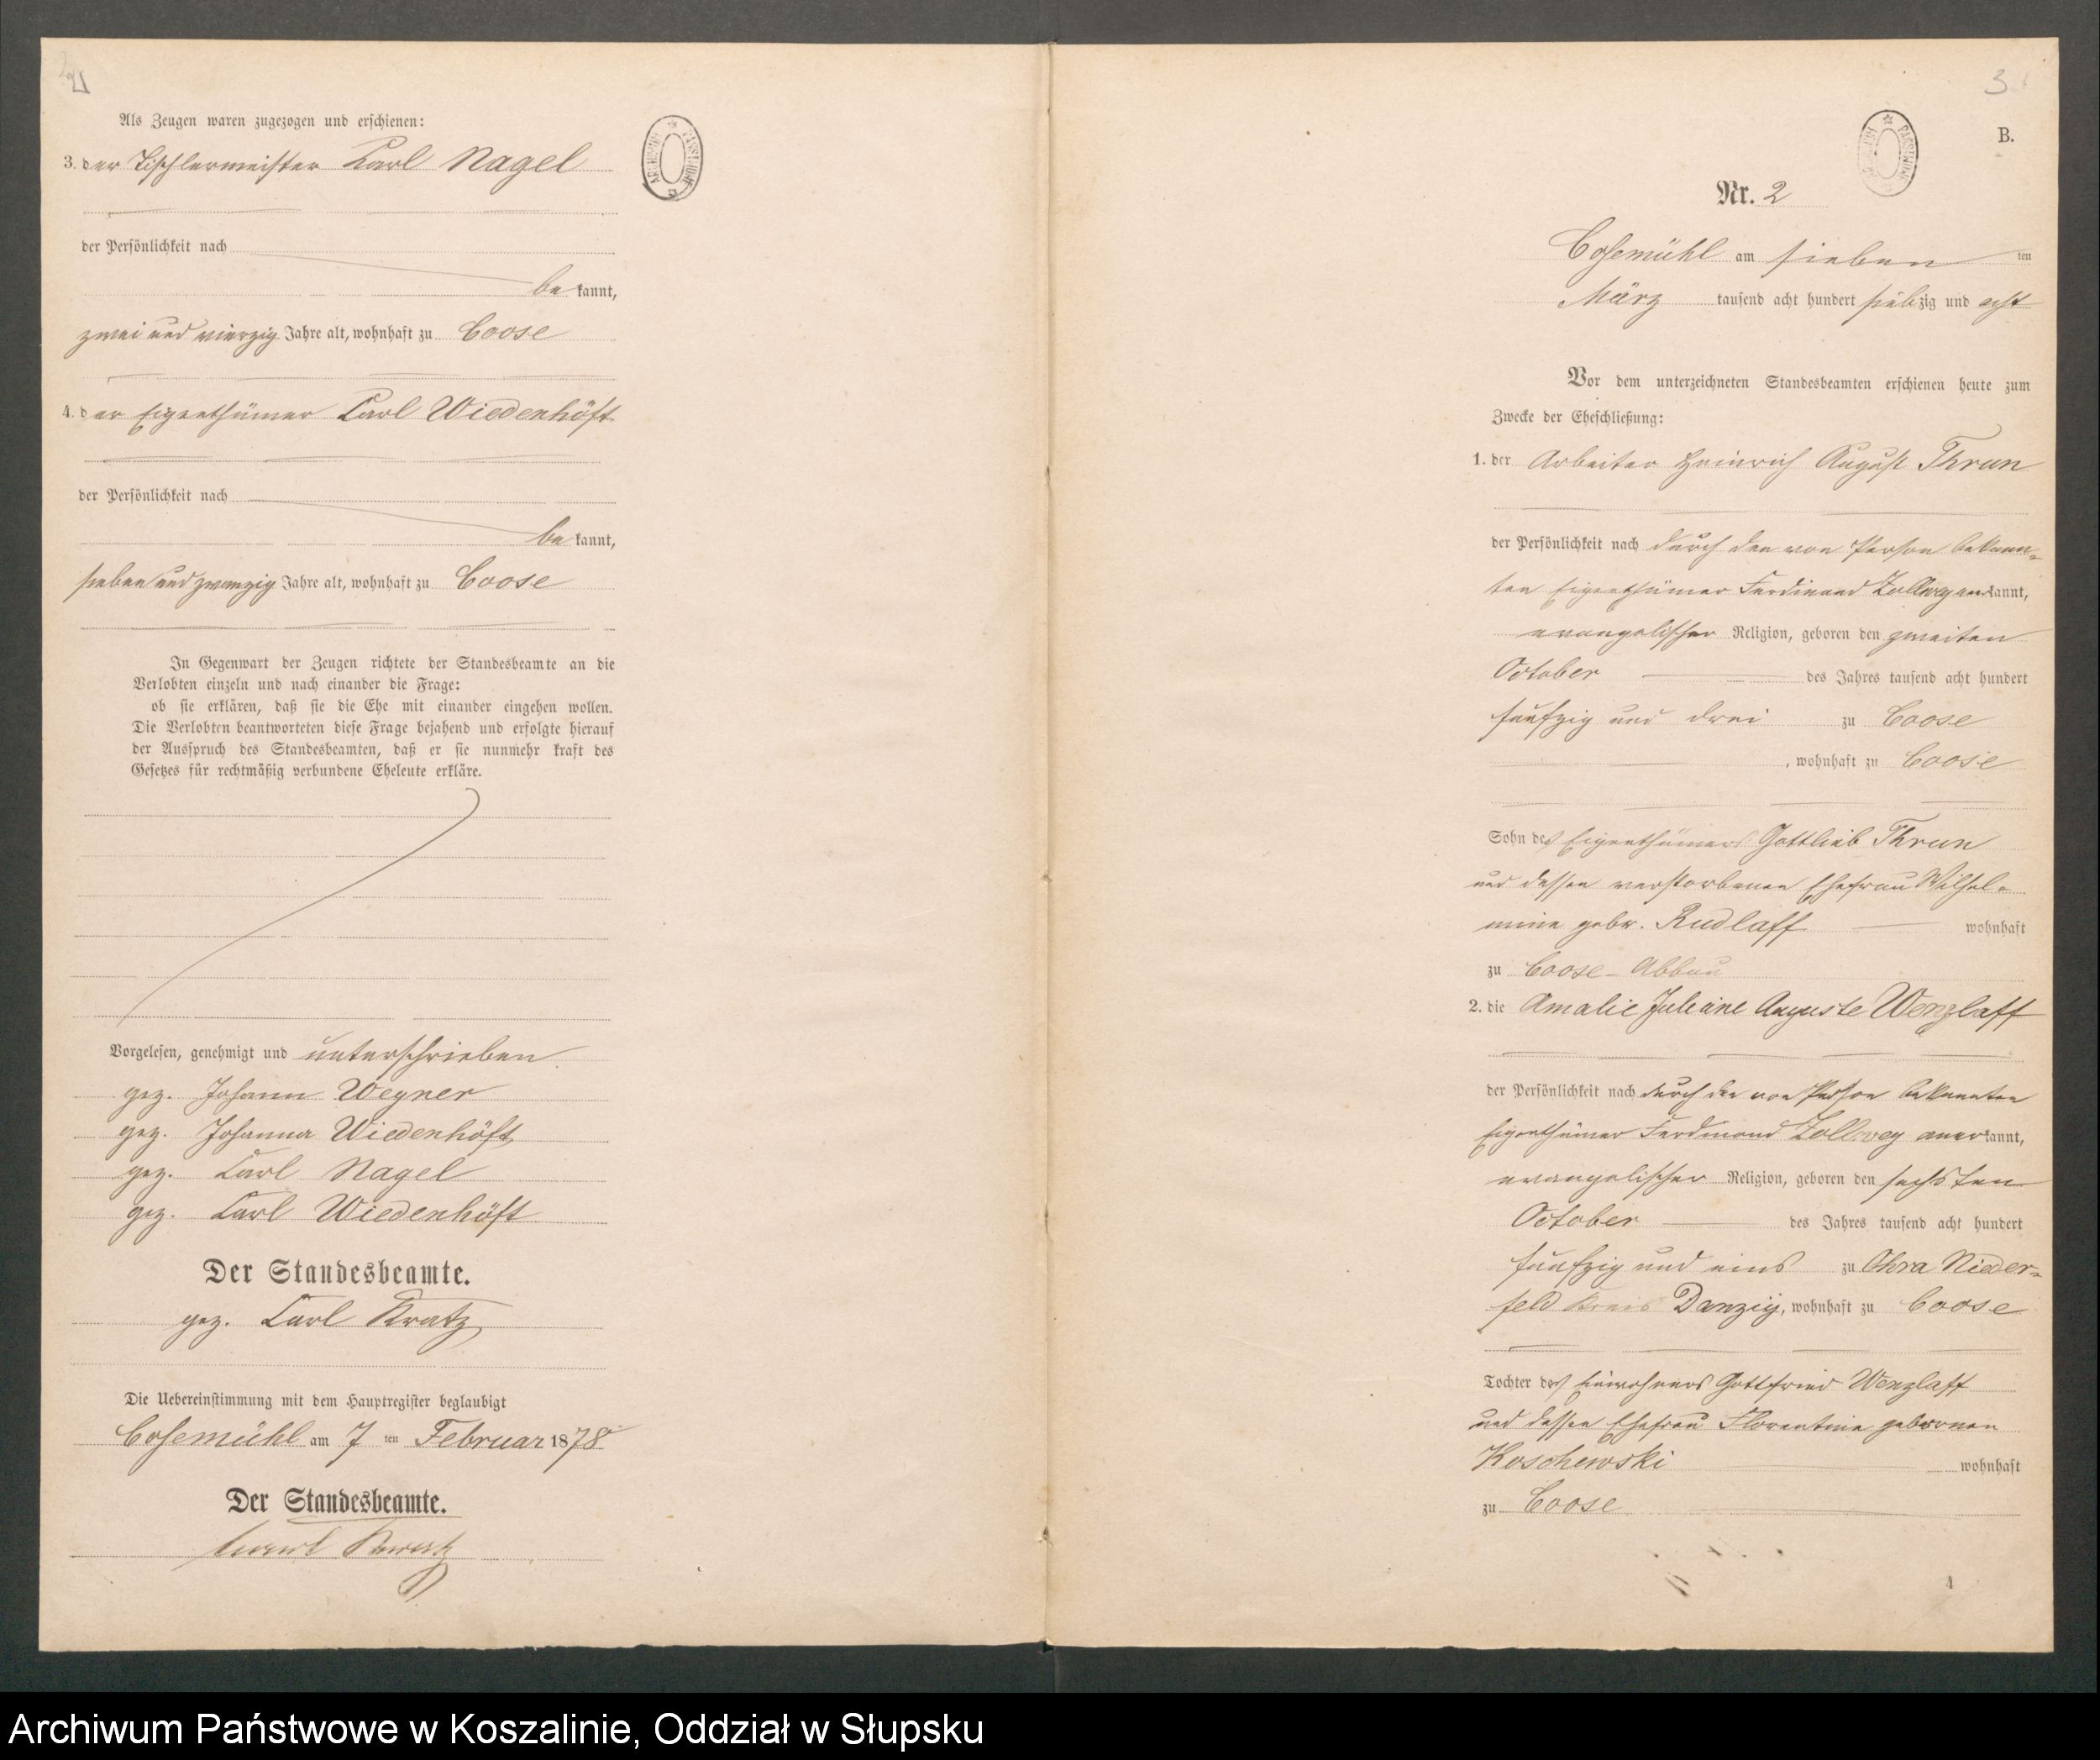 2
Als Zeugen waren zugezogen und erschienen:
3. der Tischlermeister Carl Nagel
der Persönlichkeit nach
be kannt,
zwei und vierzig Jahre alt, wohnhaft zu Coose
4. der Eigenthümer Carl Wiedenhöft
der Persönlichkeit nach
be kannt,
sieben und zwanzig Jahre alt, wohnhaft zu Coose
In Gegenwart der Zeugen richtete der Standesbeamte an die
Verlobten einzeln und nach einander die Frage:
ob sie erklären, daß sie die Ehe mit einander eingehen wollen.
Die Verlobten beantworteten diese Frage bejahend und erfolgte hierauf
der Ausspruch des Standesbeamten, daß er sie nunmehr kraft des
Gesetzes für rechtmäßig verbundene Eheleute erkläre.
Vorgelesen, genehmigt und unterschrieben
gez. Johann Wegner
gez. Johanna Wiedenhöft
gez. Carl Nagel
gez. Carl Wiedenhöft
Der Standesbeamte.
gez. Carl Kratz
Die Uebereinstimmung mit dem Hauptregister beglaubigt
Cosemühl am 7 ten Februar 1878
Der Standesbeamte.
Carl Kratz
ARCHIWUM PAŃSTWOWE
3
B.
ARCHIWUM PAŃSTWOWE
Nr. 2
Cosemühl am sieben ten
März tausend acht hundert siebzig und acht
Vor dem unterzeichneten Standesbeamten erschienen heute zum
Zwecke der Eheschließung:
1. der Arbeiter Heinrich August Thrun
der Persönlichkeit nach durch den von Person bekann-
ten Eigenthümer Ferdinand Zollweg aner kannt,
evangelischer Religion, geboren den zweiten
October des Jahres tausend acht hundert
fünfzig und drei zu Coose
, wohnhaft zu Coose
Sohn des Eigenthümers Gottlieb Thrun
und dessen verstorbenen Ehefrau Wilhel-
mine gebr. Rudlaff wohnhaft
zu Coose-Abbau
2. die Amalie Juliane Auguste Wenzlaff
der Persönlichkeit nach durch den von Person bekannten
Eigenthümer Ferdinand Zollweg aner kannt,
evangelischer Religion, geboren den sechsten
October des Jahres tausend acht hundert
fünfzig und eins zu Ohra Nieder-
feld Kreis Danzig, wohnhaft zu Coose
Tochter des Einwohners Gottfried Wenzlaff
und dessen Ehefrau Florentine gebornen
Koschewski wohnhaft
zu Coose
Archiwum Państwowe w Koszalinie, Oddział w Słupsku